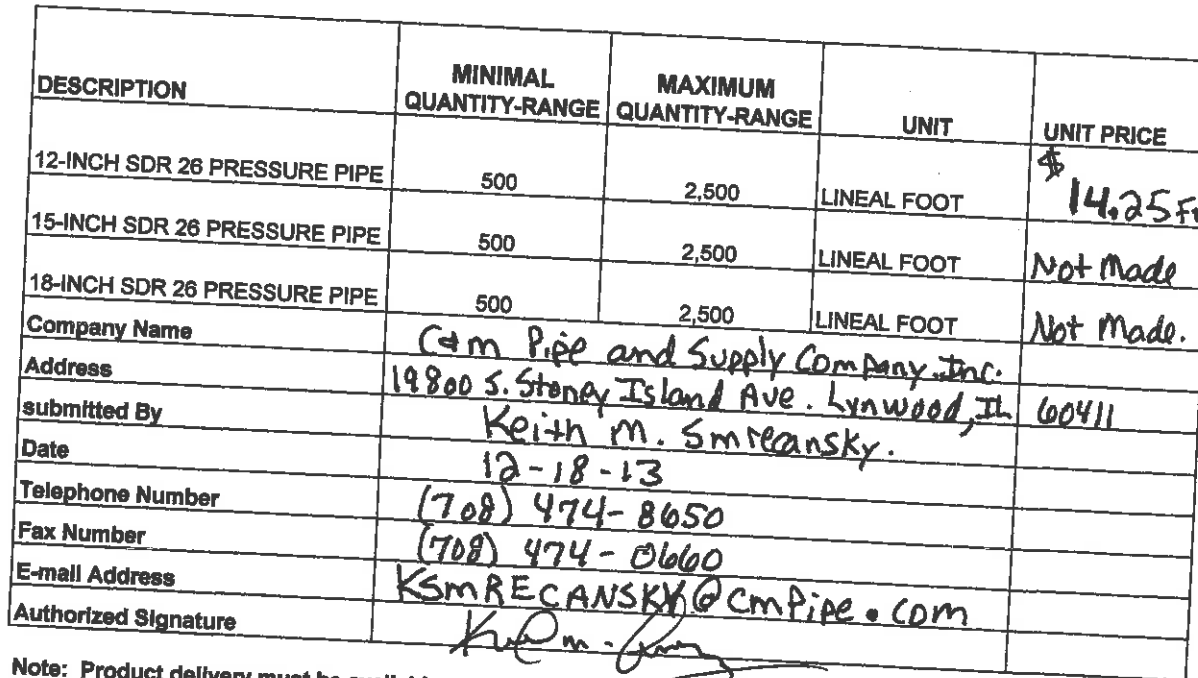 DESCRIPTION MINIMAL QUANTITY-RANGE MAXIMUM QUANTITY-RANGE UNIT UNIT PRICE
12-INCH SDR 26 PRESSURE PIPE 500 2,500 LINEAL FOOT $ 14.25
15-INCH SDR 26 PRESSURE PIPE 500 2,500 LINEAL FOOT Not Made
18-INCH SDR 26 PRESSURE PIPE 500 2,500 LINEAL FOOT Not Made.
Company Name C&M Pipe and Supply Company, Inc.
Address 19800 S. Stoney Island Ave. Lynwood, IL 60411
submitted By Keith M. Smrecansky.
Date 12-18-13
Telephone Number (708) 474-8650
Fax Number (708) 474-0660
E-mail Address KSMRECANSKY@CMPipe.com
Authorized Signature
Note: Product delivery must be